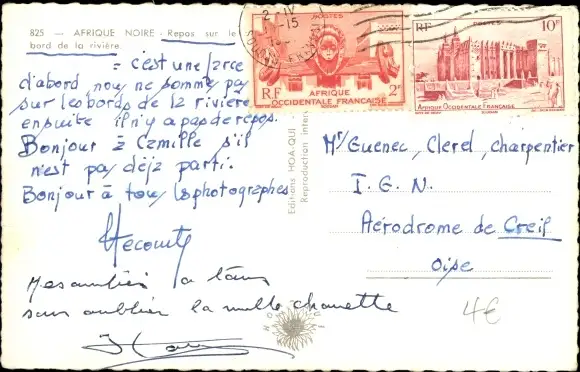 825 — AFRIQUE NOIRE - Repos sur le
bord de la rivière.
= c'est une farce
d'abord, nous ne sommes pas
sur les bords de la rivière
ensuite il n'y a pas de repos.
Bonjour à Camille s'il
n'est pas déjà parti.
Bonjour à tous les photographes
Lecomte
à tous
sans oublier la
Editions HOA-QUI
Reproduction inter
2 - IV
15
POSTES
RF
AFRIQUE
OCCIDENTALE FRANÇAISE
2F
RF
POSTES
10F
AFRIQUE OCCIDENTALE FRANÇAISE
Mrs/ Guenec, Clerel, charpentier
I. G. N.
Aérodrome de Creil
Oise
4€